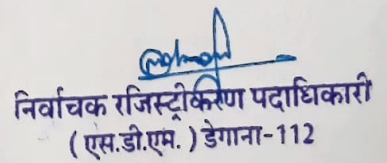 निर्वाचक रजिस्ट्रीकरण पदाधिकारी
( एस.डी.एम. ) डेगाना-112